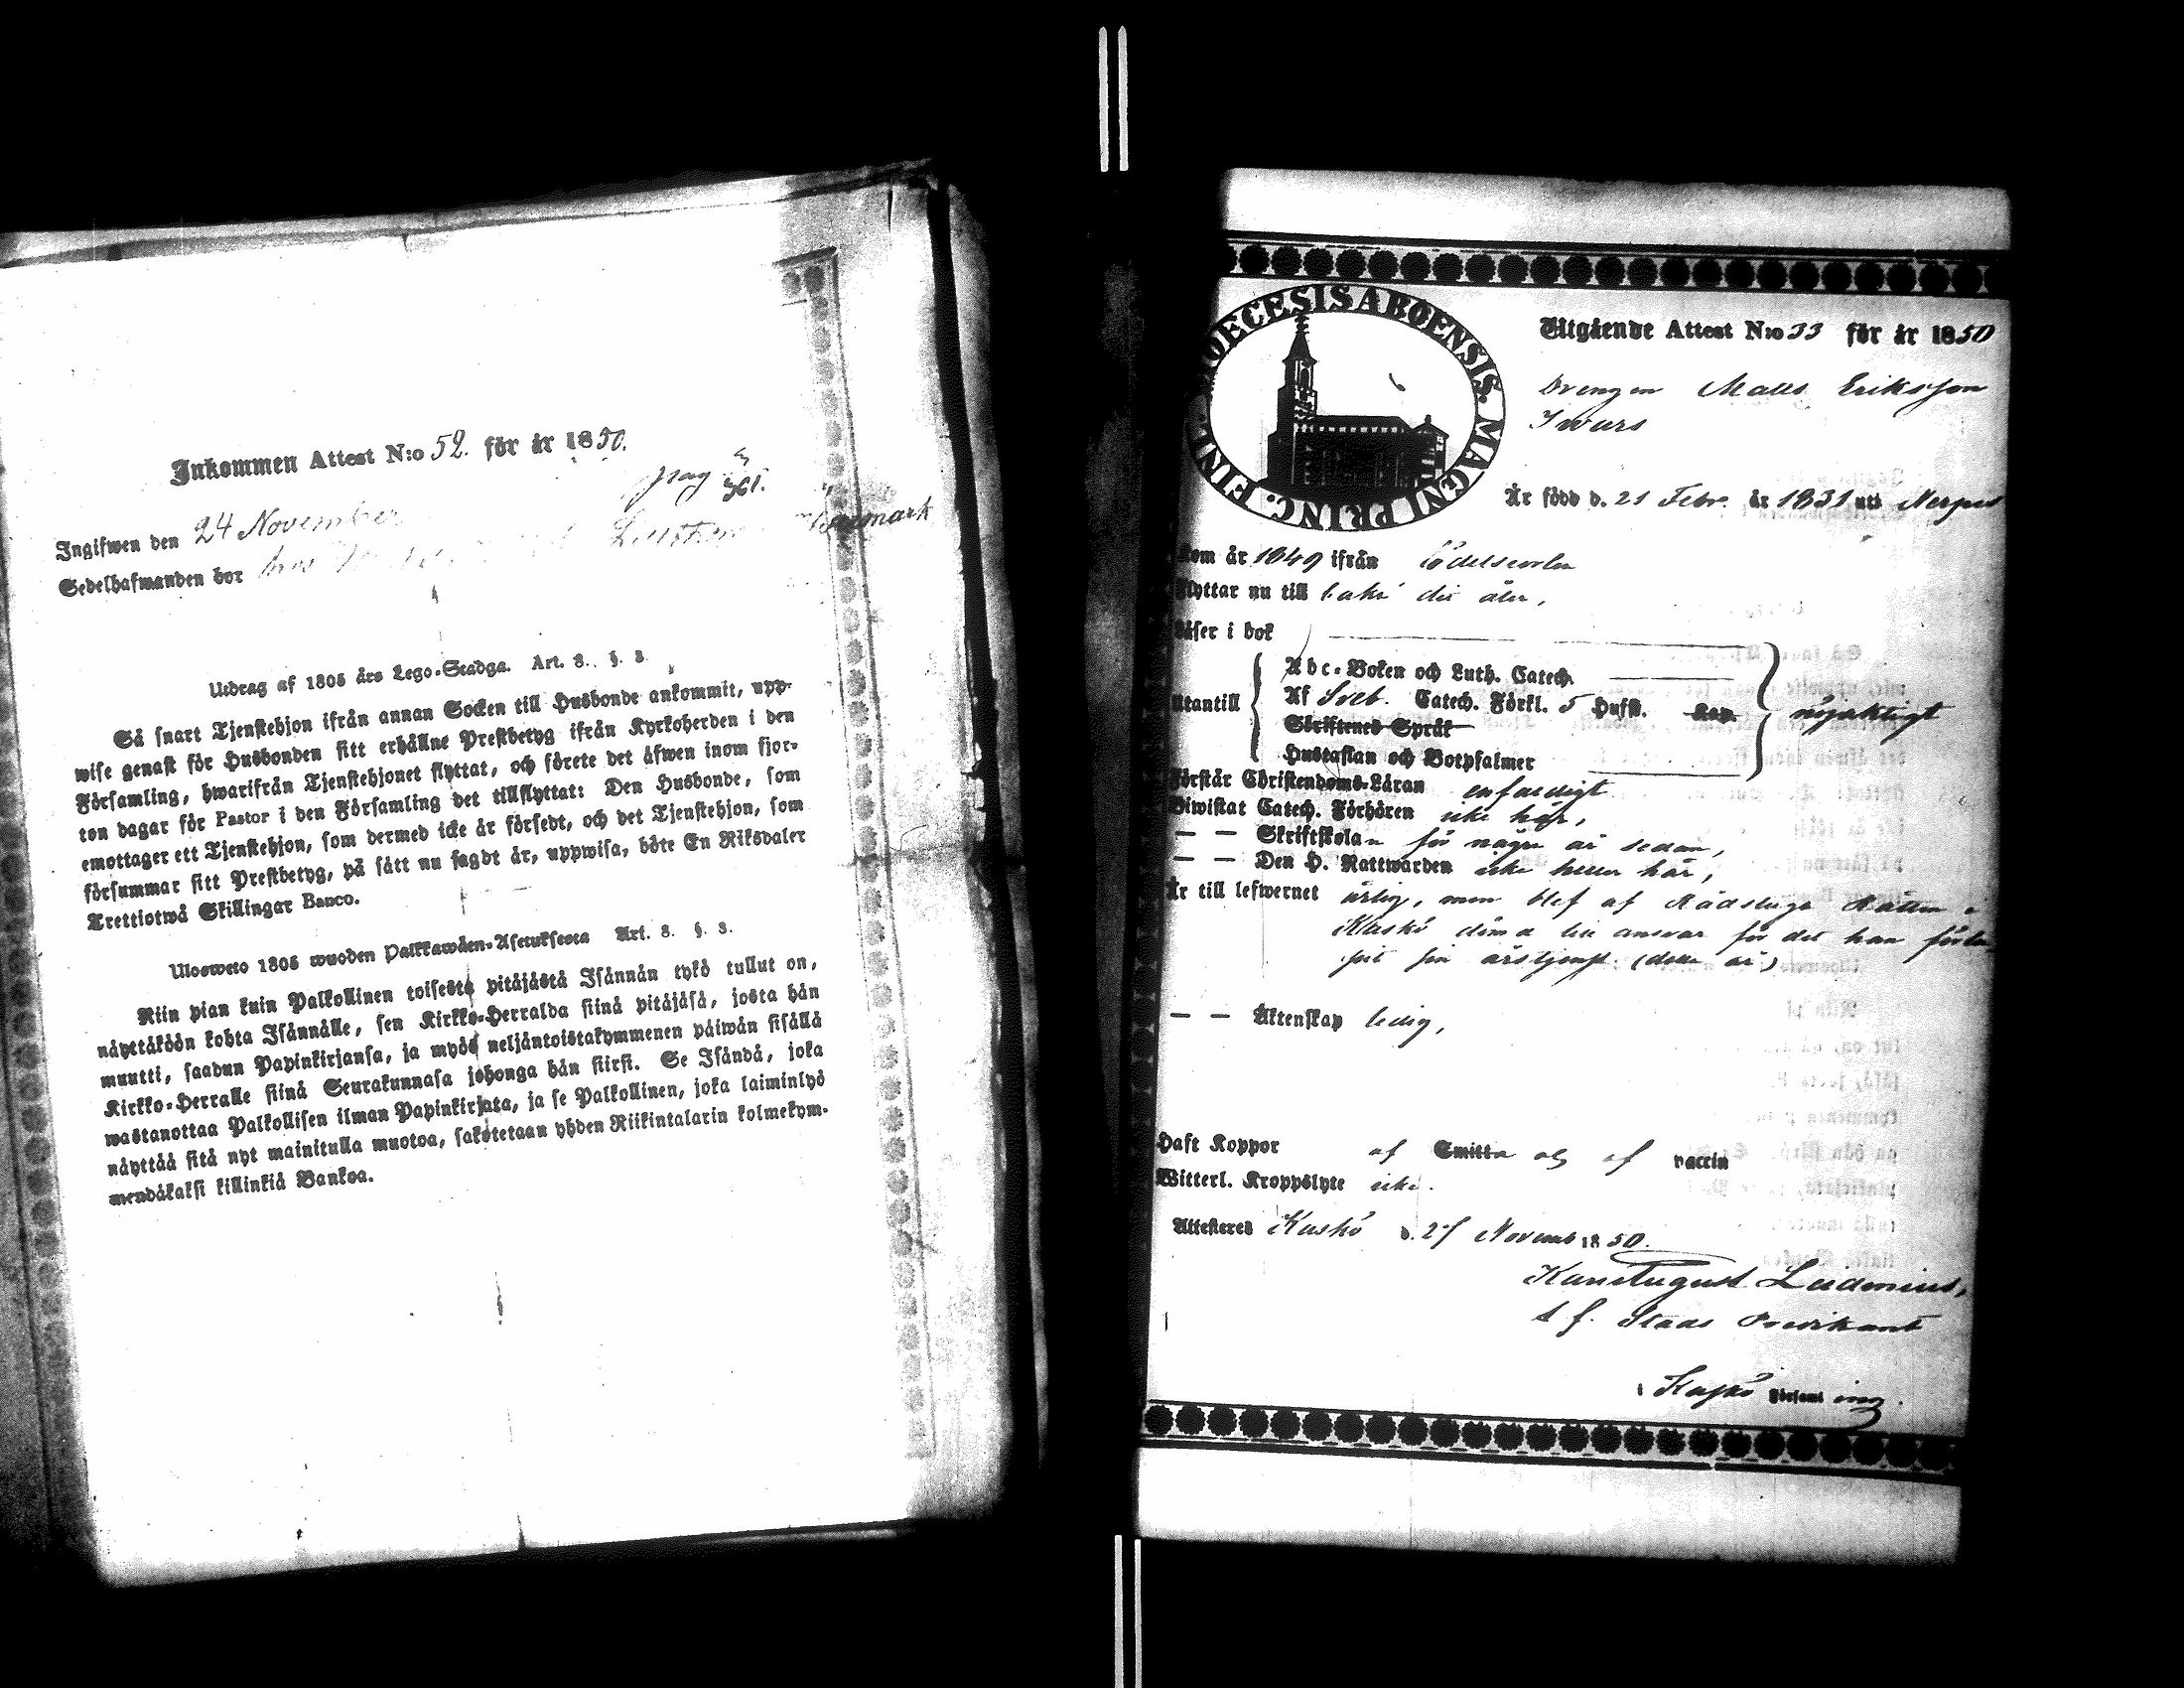 Inkommen Attest N:o 52. för år 1850.
pag 361.
Ingifwen den 24 November
Sedelhafwanden bor hos
Utdrag af 1805 års Lego-Stadga. Art. 8. §. 3.
Så snart Tjenstehjon ifrån annan Socken till Husbonde ankommit, upp-
wise genast för Husbonden sitt erhållne Prestbetyg ifrån Kyrkoherden i den
Församling, hwarifrån Tjenstehjonet flyttat, och förete det äfwen inom fjor-
ton dagar för Pastor i den Församling det tillflyttat: Den Husbonde, som
emottager ett Tjenstehjon, som dermed icke är försedt, och det Tjenstehjon, som
försummar sitt Prestbetyg, på sätt nu sagdt är, uppwisa, böte En Riksdaler
Trettiotwå Skillingar Banco.
Ulosweto 1805 wuoden Palkkawäen-Asetuksesta Art. 8. §. 3.
Niin pian kuin Palkollinen toisesta pitäjästä Isännän tykö tullut on,
näyttäköön kohta Isännälle, sen Kirkko-Herralda siinä pitäjäsä, josta hän
muutti, saadun Papinkirjansa, ja myös neljäntoistakymmenen päiwän sisällä
Kirkko-Herralle siinä Seurakunnasa johonga hän siirsi. Se Isändä, joka
wastanottaa Palkollisen ilman Papinkirjata, ja se Palkollinen, joka laiminlyö
näyttää sitä nyt mainitulla muotoa, sakotetaan yhden Riikintalarin kolmekym-
mendäkaksi killinkiä Bankoa.
DIOECESIS ABOENSIS. MAGNI PRINC. FINL.
Utgående Attest N:o 33 för år 1850
Drengen Matts Eriksson
Iwars
Är född d. 21 Febr. år 1831 uti Nerpes
Kom år 1849 ifrån födelseorten
Flyttar nu till baka dit åter,
Läser i bok
Utantill
Abc-Boken och Luth. Catech.
Af Sveb. Catech. Förkl. 5 Hufst. Kap. nöjaktigt
Skriftenes Språk
Hustaflan och Botpsalmer
Förstår Christendoms-Läran enfaldigt
Biwistat Catech. Förhören icke här,
— — Skriftskolan för några år sedan,
— — Den H. Nattwarden icke heller här,
Är till lefwernet ärlig, men blef af Rådstuge Rätten i
Kaskö dömd till ansvar för det han förlu-
pit sin årstjenst (detta år)
— — Äktenskap ledig,
Haft Koppor af Smitta af vaccin
Witterl. Kroppslyte icke.
Attesteras Kaskö d. Novemb 1850.
August
t f. Stads Predikant
i Kaskö Församling.